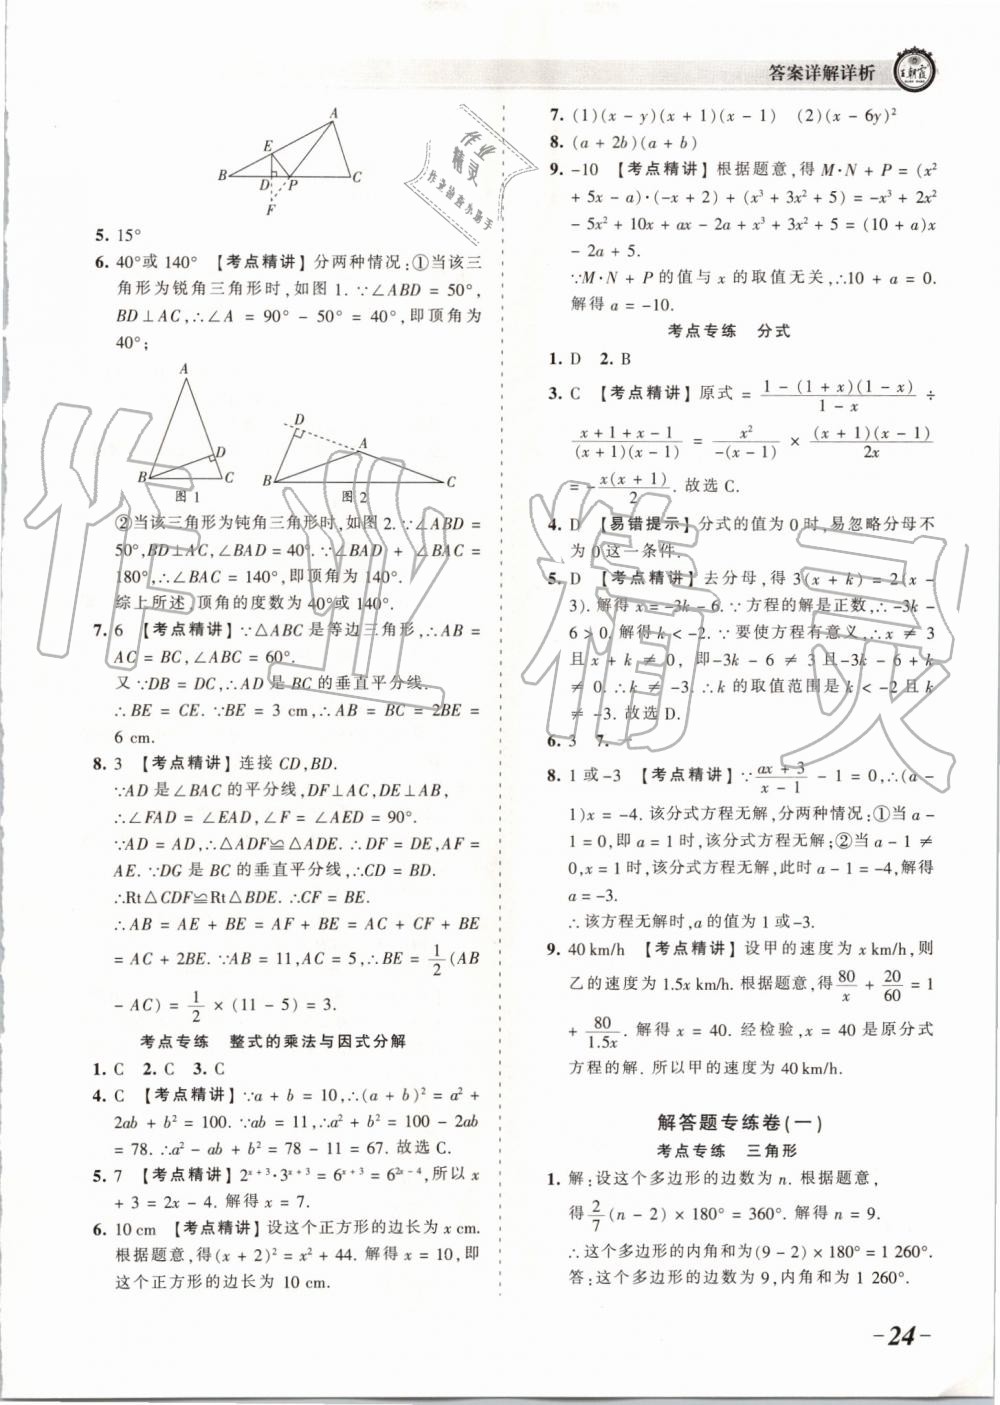 答案详解详析
王朝霞
A
E
B D P C
F
5. 15°
6. 40°或 140° 【考点精讲】分两种情况:①当该三
角形为锐角三角形时,如图 1. ∵∠ABD = 50°,
BD⊥AC,∴∠A = 90° - 50° = 40°,即顶角为
40°;
A
D
B C
图 1
D
A
B C
图 2
②当该三角形为钝角三角形时,如图 2. ∵∠ABD =
50°,BD⊥AC,∠BAD = 40°. ∵∠BAD + ∠BAC =
180°,∴∠BAC = 140°,即顶角为 140°.
综上所述,顶角的度数为 40°或 140°.
7. 6 【考点精讲】∵△ABC 是等边三角形,∴AB =
AC = BC,∠ABC = 60°.
又∵DB = DC,∴AD 是 BC 的垂直平分线.
∴BE = CE. ∵BE = 3 cm,∴AB = BC = 2BE =
6 cm.
8. 3 【考点精讲】连接 CD,BD.
∵AD 是∠BAC 的平分线,DF⊥AC,DE⊥AB,
∴∠FAD = ∠EAD,∠F = ∠AED = 90°.
∵AD = AD,∴△ADF≌△ADE. ∴DF = DE,AF =
AE. ∵DG 是 BC 的垂直平分线,∴CD = BD.
∴Rt△CDF≌Rt△BDE. ∴CF = BE.
∴AB = AE + BE = AF + BE = AC + CF + BE
= AC + 2BE. ∵AB = 11,AC = 5,∴BE = 1/2 (AB
- AC) = 1/2 × (11 - 5) = 3.
考点专练 整式的乘法与因式分解
1. C 2. C 3. C
4. C 【考点精讲】∵a + b = 10,∴(a + b)² = a² +
2ab + b² = 100. ∵ab = 11,∴a² + b² = 100 - 2ab
= 78. ∴a² - ab + b² = 78 - 11 = 67. 故选 C.
5. 7 【考点精讲】2ˣ⁺³·3ˣ⁺³ = 6ˣ⁺³ = 6²ˣ⁻⁴,所以 x
+ 3 = 2x - 4. 解得 x = 7.
6. 10 cm 【考点精讲】设这个正方形的边长为 x cm.
根据题意,得(x + 2)² = x² + 44. 解得 x = 10,即
这个正方形的边长为 10 cm.
7. (1)(x - y)(x + 1)(x - 1) (2)(x - 6y)²
8. (a + 2b)(a + b)
9. -10 【考点精讲】根据题意,得 M·N + P = (x²
+ 5x - a)·(-x + 2) + (x³ + 3x² + 5) = -x³ + 2x²
- 5x² + 10x + ax - 2a + x³ + 3x² + 5 = (10 + a)x
- 2a + 5.
∵M·N + P 的值与 x 的取值无关,∴10 + a = 0.
解得 a = -10.
考点专练 分式
1. D 2. B
3. C 【考点精讲】原式 = (1 - (1 + x)(1 - x))/(1 - x) ÷
(x + 1 + x - 1)/((x + 1)(x - 1)) = x²/(-(x - 1)) × ((x + 1)(x - 1))/2x
= - x(x + 1)/2. 故选 C.
4. D 【易错提示】分式的值为 0 时,易忽略分母不
为 0 这一条件.
5. D 【考点精讲】去分母,得 3(x + k) = 2(x -
3). 解得 x = -3k - 6. ∵方程的解是正数,∴-3k -
6 > 0. 解得 k < -2. ∵要使方程有意义,∴x ≠ 3
且 x + k ≠ 0, 即 -3k - 6 ≠ 3 且 -3k - 6 + k
≠ 0. ∴k ≠ -3. ∴k 的取值范围是 k < -2 且 k
≠ -3. 故选 D.
6. 3 7.
8. 1 或 -3 【考点精讲】∵(ax + 3)/(x - 1) - 1 = 0,∴(a -
1)x = -4. 该分式方程无解,分两种情况:①当 a -
1 = 0,即 a = 1 时,该分式方程无解;②当 a - 1 ≠
0,x = 1 时,该分式方程无解,此时 a - 1 = -4,解得
a = -3.
∴该方程无解时,a 的值为 1 或 -3.
9. 40 km/h 【考点精讲】设甲的速度为 x km/h,则
乙的速度为 1.5x km/h. 根据题意,得 80/x + 20/60 = 1
+ 80/1.5x. 解得 x = 40. 经检验,x = 40 是原分式
方程的解. 所以甲的速度为 40 km/h.
解答题专练卷(一)
考点专练 三角形
1. 解:设这个多边形的边数为 n. 根据题意,
得 2/7 (n - 2) × 180° = 360°. 解得 n = 9.
∴这个多边形的内角和为(9 - 2) × 180° = 1 260°.
答:这个多边形的边数为 9,内角和为 1 260°.
-24-
作业精灵
作业
精灵
作业检查小助手